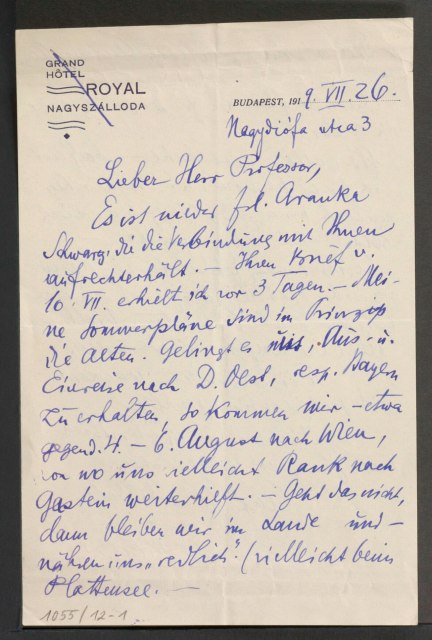 GRAND
HÔTEL
ROYAL
NAGYSZÁLLODA
BUDAPEST, 191 9. VII. 26.
Nagydiófa utca 3
Lieber Herr Professor,
Es ist wieder frl. Aranka
Schwarz, die die Verbindung mit Ihnen
aufrechterhält. – Ihren Brief v.
10. VII. erhielt ich vor 3 Tagen. – Mei-
ne Sommerpläne sind im Prinzip
die alten. Gelingt es uns, Aus- u.
Einreise nach D. Oest, resp. Bayern
zu erhalten, so kommen wir – etwa
gegend. 4. – 6. August nach Wien,
von wo uns vielleicht Rank nach
Gastein weiterhilft. – Geht das nicht,
dann bleiben wir im Lande und –
nähren uns „redlich". (vielleicht beim
Plattensee. –
1055/12-1